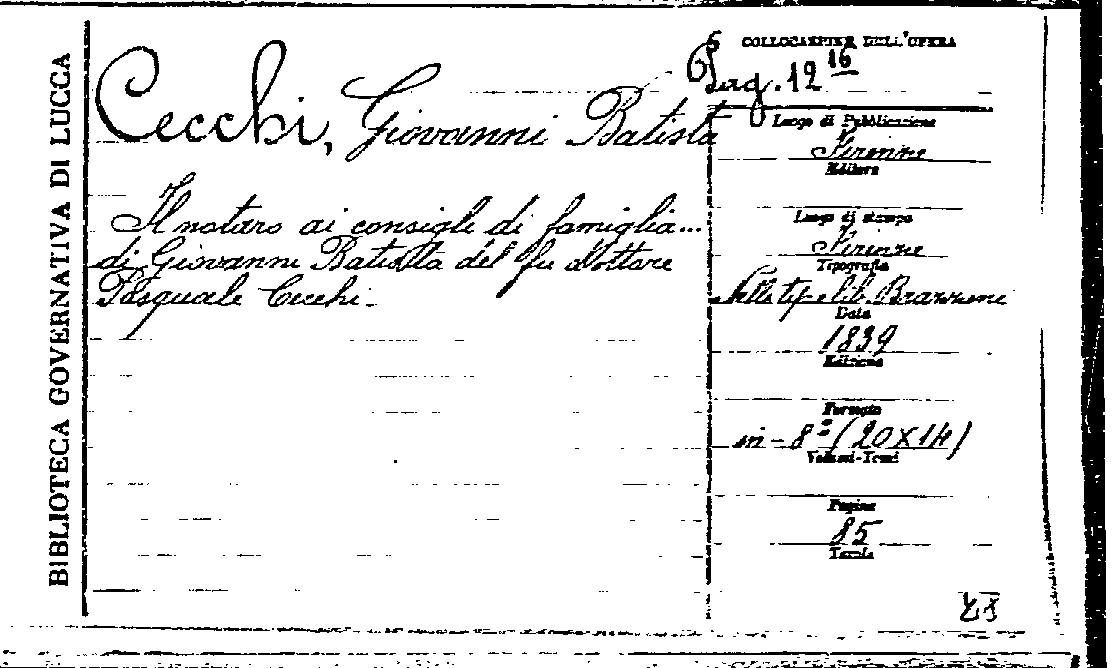 BIBLIOTECA GOVERNATIVA DI LUCCA
Cecchi, Giovanni Batista
Il notaro ai consigli di famiglia...
di Giovanni Batista del fu dottore
Pasquale Cecchi.
COLLOCAZIONE DELL'OPERA
Pag. 12 16
Luogo di Pubblicazione
Firenze
Editore
Luogo di stampa
Firenze
Tipografia
Nella tip. e lib. Brazzini
Data
1839
Edizione
Formato
in-8º (20X14)
Volumi-Tomi
Pagine
85
Tavole